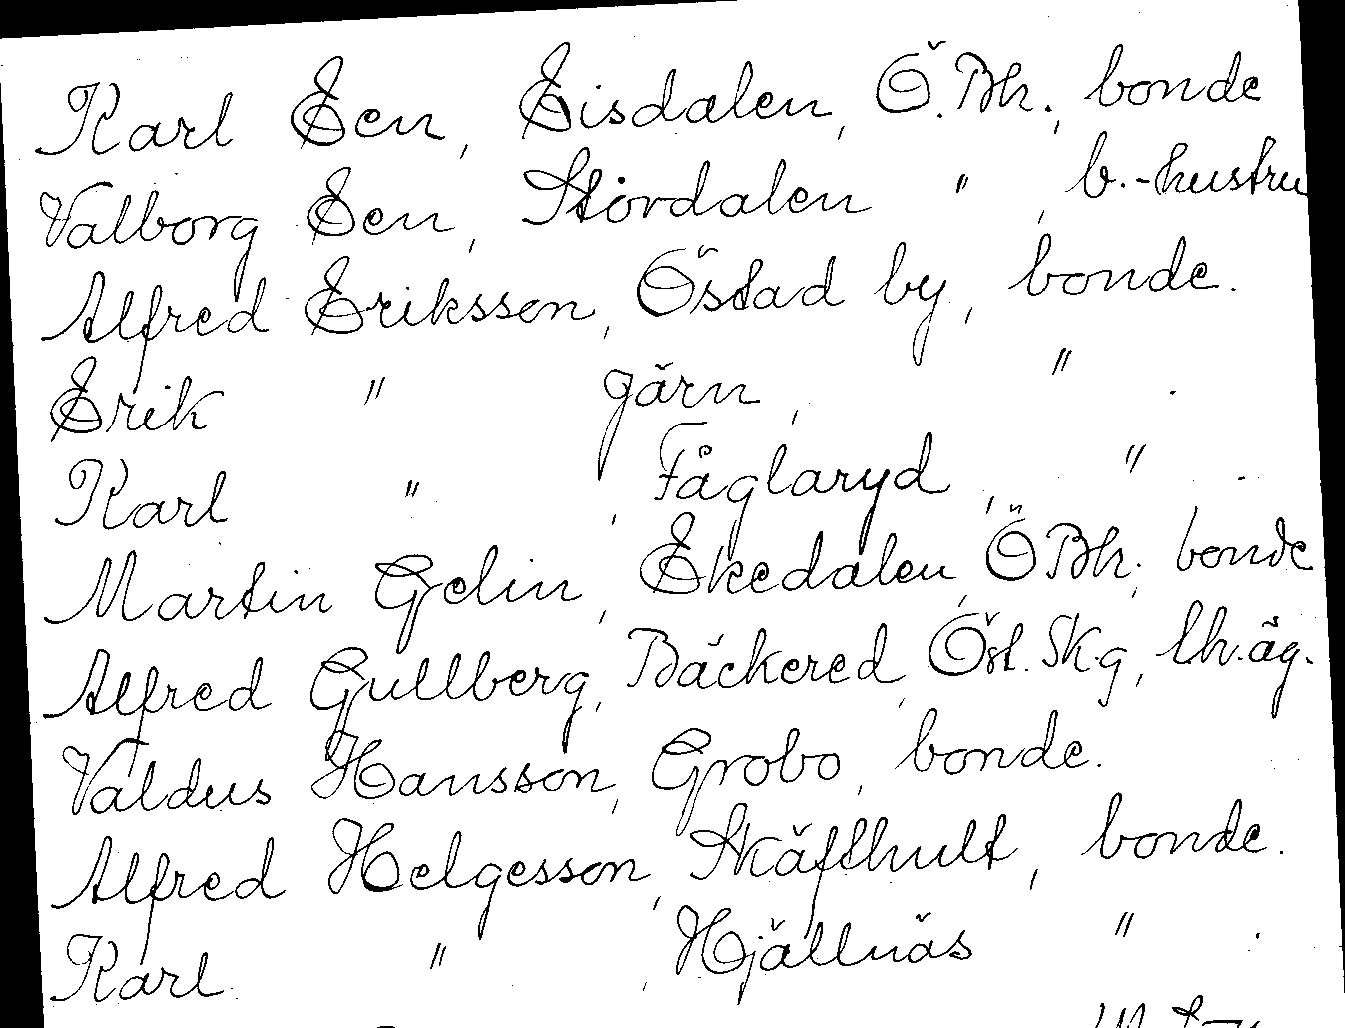 Karl Een, Eisdalen, Ö.Bh., bonde
Valborg Een, Stördalen " , b.-hustru
Alfred Eriksson, Östad by, bonde.
Erik " gärn, " .
Karl " , Fåglaryd, " .
Martin Gelin, Ekedalen, Ö Bh. bonde
Alfred Gullberg, Bäckered, Öst. Sk.g, lh.äg.
Valdus Hansson, Grobo, bonde.
Alfred Helgesson, Skäfthult, bonde.
Karl " , Hjällnäs " .